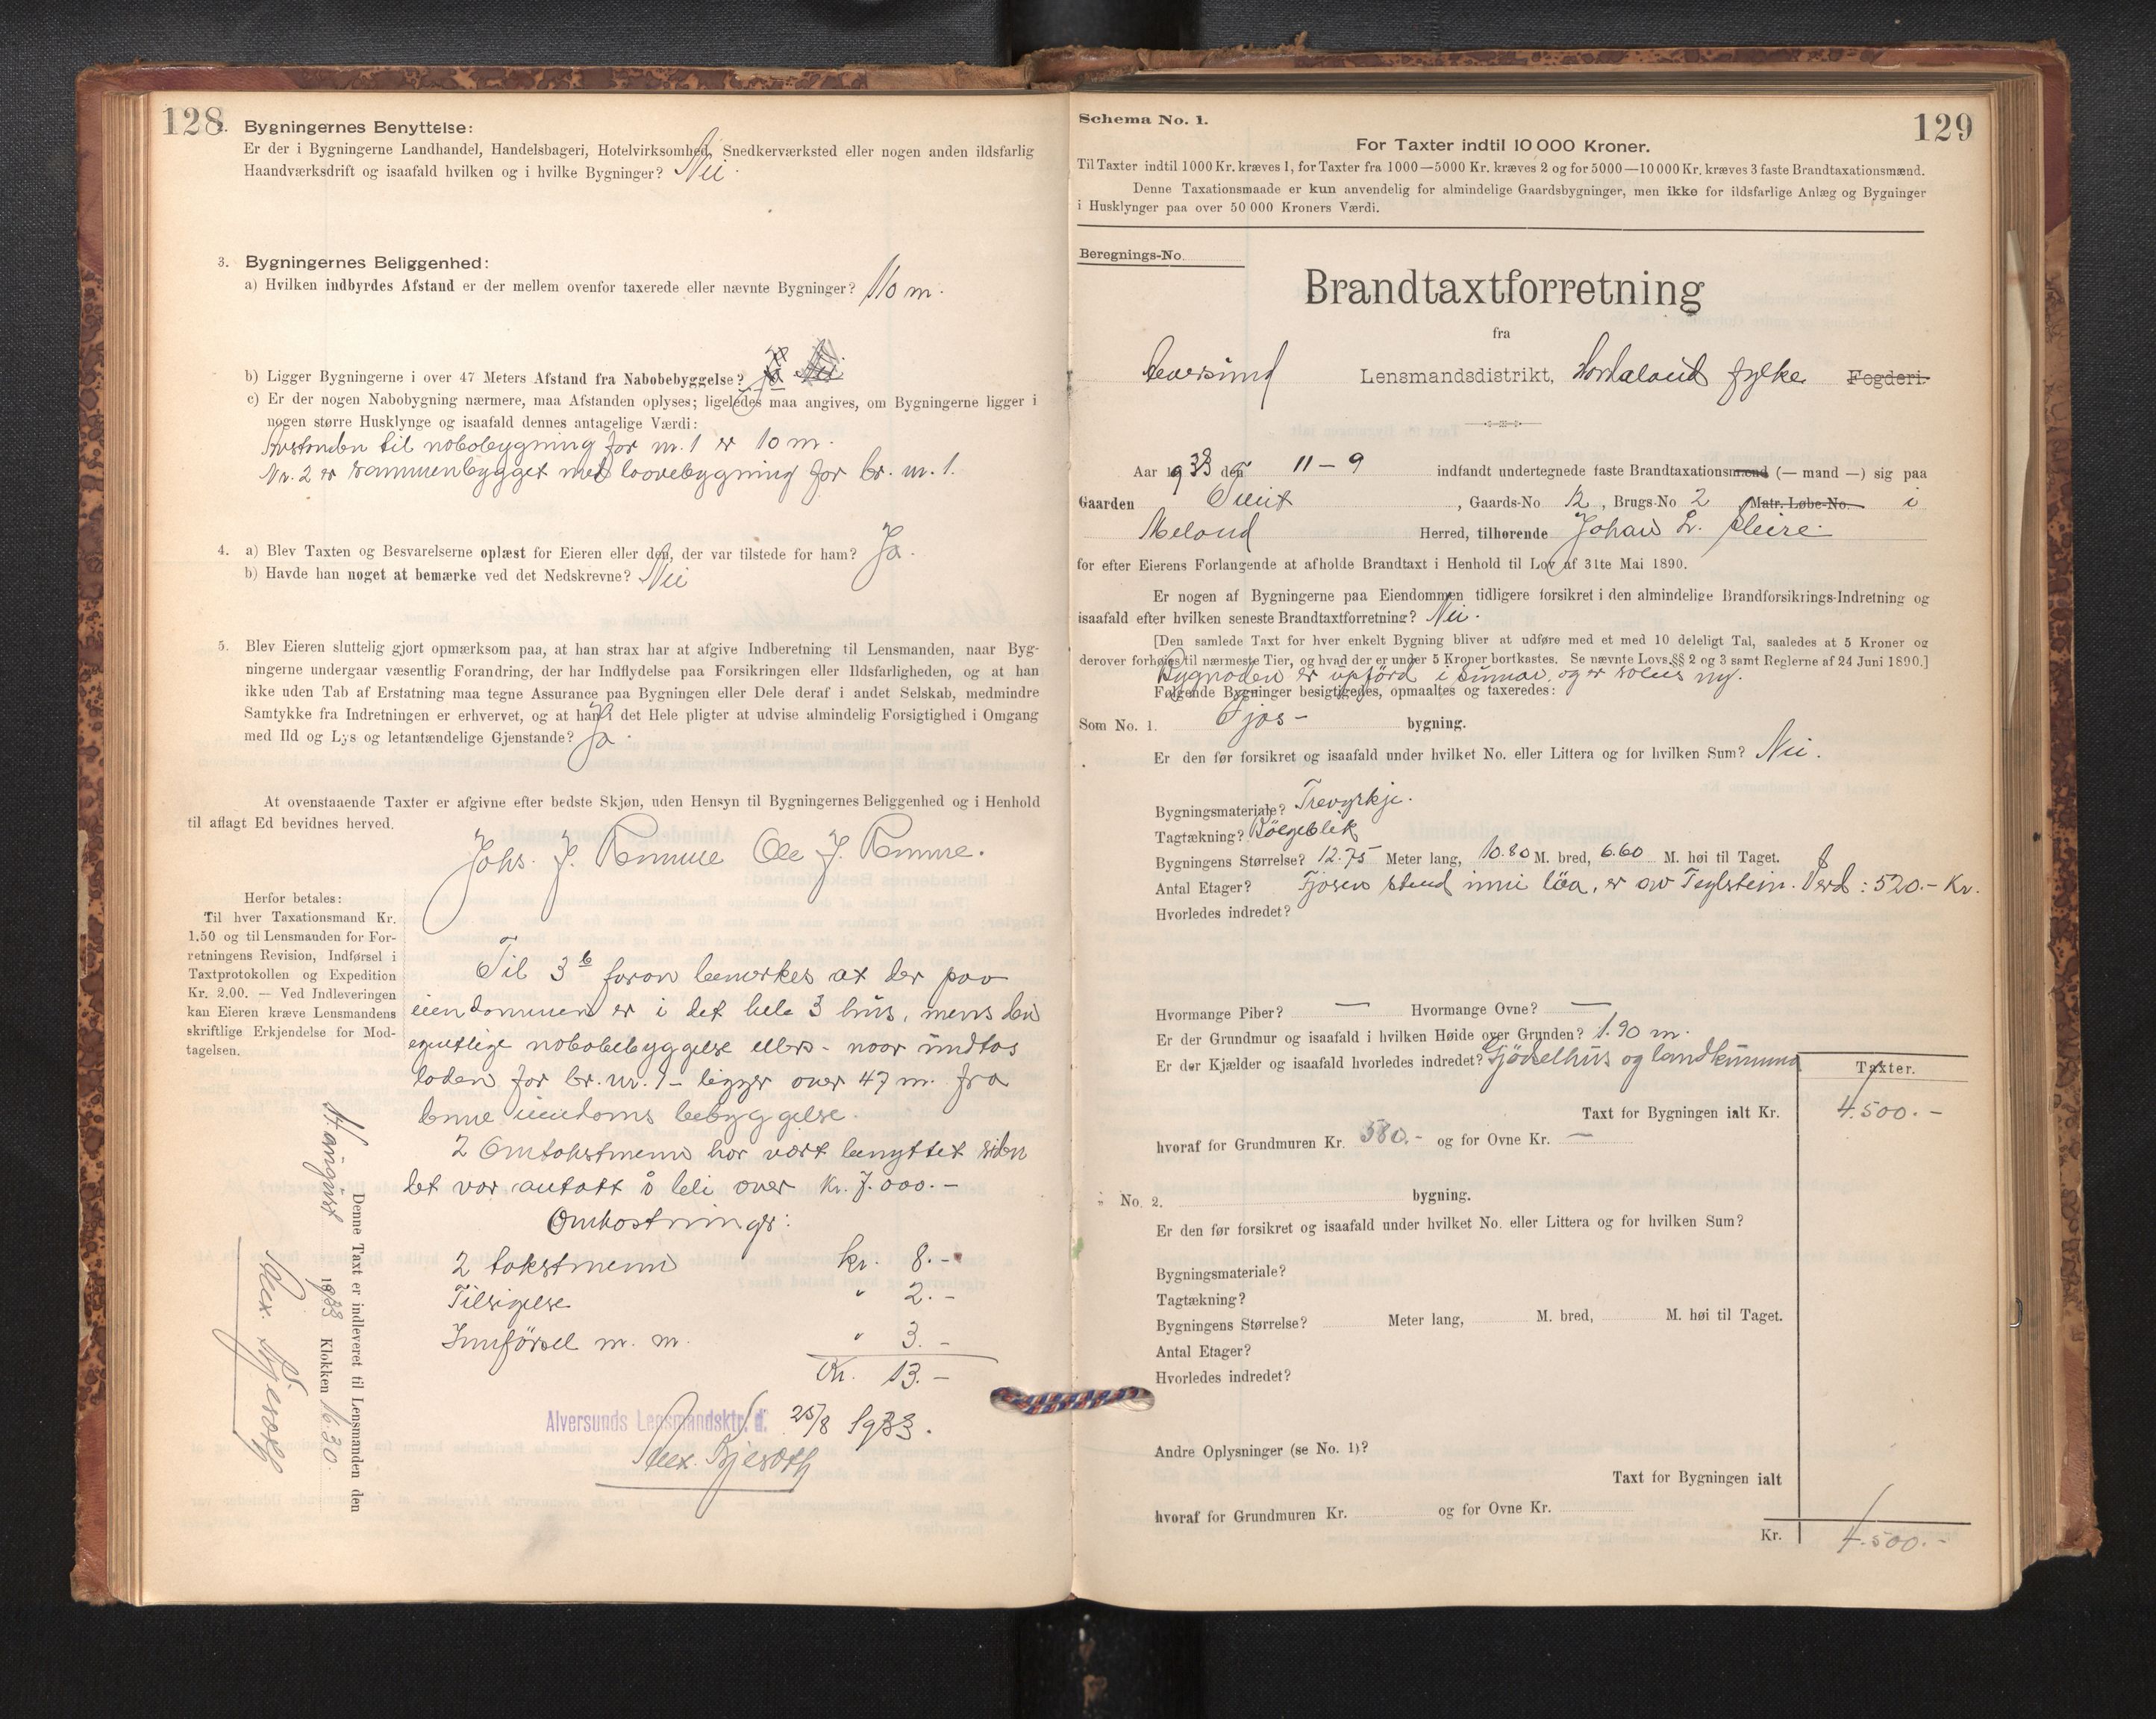 128
Bygningernes Benyttelse:
Er der i Bygningerne Landhandel, Handelsbageri, Hotelvirksomhed, Snedkerværksted eller nogen anden ildsfarlig
Haandværksdrift og isaafald hvilken og i hvilke Bygninger? Nei.
3. Bygningernes Beliggenhed:
a) Hvilken indbyrdes Afstand er der mellem ovenfor taxerede eller nævnte Bygninger? 110 m.
b) Ligger Bygningerne i over 47 Meters Afstand fra Nabobebyggelse?
c) Er der nogen Nabobygning nærmere, maa Afstanden oplyses; ligeledes maa angives, om Bygningerne ligger i
nogen større Husklynge og isaafald dennes antagelige Værdi:
Avstanden til nabobygning for nr. 1 er 10 m.
Nr. 2 er sammenbygget med loovebygning for br. nr. 1.
4. a) Blev Taxten og Besvarelserne oplæst for Eieren eller den, der var tilstede for ham? Ja.
b) Havde han noget at bemærke ved det Nedskrevne? Nei
5. Blev Eieren sluttelig gjort opmærksom paa, at han strax har at afgive Indberetning til Lensmanden, naar Byg-
ningerne undergaar væsentlig Forandring, der har Indflydelse paa Forsikringen eller Ildsfarligheden, og at han
ikke uden Tab af Erstatning maa tegne Assurance paa Bygningen eller Dele deraf i andet Selskab, medmindre
Samtykke fra Indretningen er erhvervet, og at han i det Hele pligter at udvise almindelig Forsigtighed i Omgang
med Ild og Lys og letantændelige Gjenstande? Ja.
At ovenstaaende Taxter er afgivne efter bedste Skjøn, uden Hensyn til Bygningernes Beliggenhed og i Henhold
til aflagt Ed bevidnes herved.
Johs. J. Ole J.
Herfor betales:
Til hver Taxationsmand Kr.
1.50 og til Lensmanden for For-
retningens Revision, Indførsel i
Taxtprotokollen og Expedition
Kr. 2.00. — Ved Indleveringen
kan Eieren kræve Lensmandens
skriftlige Erkjendelse for Mod-
tagelsen.
Til 3 b foran bemerkes at der paa
eiendommen er i det hele 3 hus, mens den
egentlige nabobebyggelse ellers - naar undtas
loden for br. nr. 1 - ligger over 47 m. fra
denne eiendoms bebyggelse.
2 Omtakstmenn har vært benyttet siden
det var antatt å bli over Kr. 7.000.-
Omkostninger:
2 takstmenn kr. 8.-
Tilsigelse " 2.-
Innförsel m. m. " 3.-
Kr. 13.-
Alversunds Lensmandsktr. d. 25/8 1933.
Alex.
Denne Taxt er indleveret til Lensmanden den
august 1933 Klokken 16.30
Alex.
Schema No. 1.
129
For Taxter indtil 10 000 Kroner.
Til Taxter indtil 1000 Kr. kræves 1, for Taxter fra 1000—5000 Kr. kræves 2 og for 5000—10 000 Kr. kræves 3 faste Brandtaxationsmænd.
Denne Taxationsmaade er kun anvendelig for almindelige Gaardsbygninger, men ikke for ildsfarlige Anlæg og Bygninger
i Husklynger paa over 50 000 Kroners Værdi.
Beregnings-No.
Brandtaxtforretning
fra
Lensmandsdistrikt, Hordaland fylke Fogderi.
Aar 1933 den 11-9 indfandt undertegnede faste Brandtaxationsmænd (— mand —) sig paa
Gaarden , Gaards-No 12, Brugs-No 2 Matr. Løbe-No. i
Meland Herred, tilhørende Johan L. Fleire.
for efter Eierens Forlangende at afholde Brandtaxt i Henhold til Lov af 31te Mai 1890.
Er nogen af Bygningerne paa Eiendommen tidligere forsikret i den almindelige Brandforsikrings-Indretning og
isaafald efter hvilken seneste Brandtaxtforretning? Nei.
[Den samlede Taxt for hver enkelt Bygning bliver at udføre med et med 10 deleligt Tal, saaledes at 5 Kroner og
derover forhøies til nærmeste Tier, og hvad der er under 5 Kroner bortkastes. Se nævnte Lovs §§ 2 og 3 samt Reglerne af 24 Juni 1890.]
Bygnaden er uppförd i sumar, og er soleis ny.
Følgende Bygninger besigtigedes, opmaaltes og taxeredes:
Som No. 1. Fjos- bygning.
Er den før forsikret og isaafald under hvilket No. eller Littera og for hvilken Sum? Nei.
Bygningsmateriale? Treverkje.
Tagtækning? Bölgeblek
Bygningens Størrelse? 12.75 Meter lang, 10.80 M. bred, 6.60 M. høi til Taget.
Antal Etager? Fjosen stend inni löa, er av Teglstein. Verd: 520.- Kr.
Hvorledes indredet?
Hvormange Piber? — Hvormange Ovne? —
Er der Grundmur og isaafald i hvilken Høide over Grunden? 1.90 m.
Er der Kjælder og isaafald hvorledes indredet? Gjödselhus og landkumma
Taxter.
Taxt for Bygningen ialt Kr. 4.500.-
hvoraf for Grundmuren Kr. 580.- og for Ovne Kr. —
No. 2. bygning.
Er den før forsikret og isaafald under hvilket No. eller Littera og for hvilken Sum?
Bygningsmateriale?
Tagtækning?
Bygningens Størrelse? Meter lang, M. bred, M. høi til Taget.
Antal Etager?
Hvorledes indredet?
Andre Oplysninger (se No. 1)?
Taxt for Bygningen ialt
hvoraf for Grundmuren Kr. og for Ovne Kr.
Kr. 4.500.-